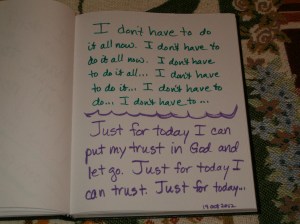 I don't have to do
it all now. I don't have to
do it all now. I don't have
to do it all... I don't have
to do it... I don't have to
do... I don't have to ...
Just for today I can
put my trust in God and
let go. Just for today I
can trust. Just for today...